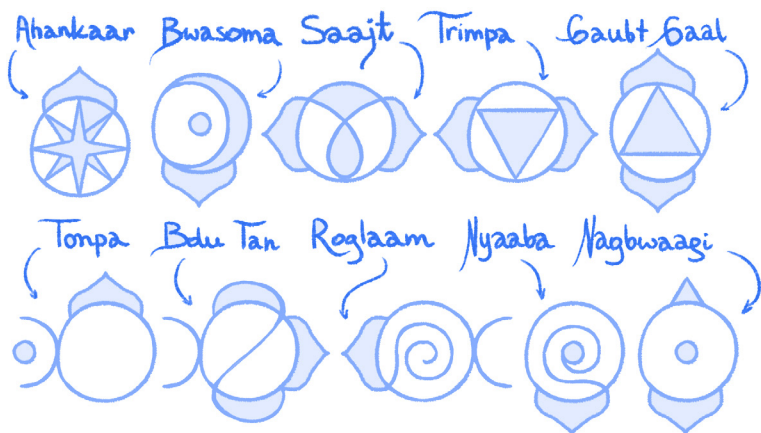 Ahankaar Bwasoma Saajt Trimpa Gaubt Gaal
Tonpa Bdu Tan Roglaam Nyaaba Nagbwaagi